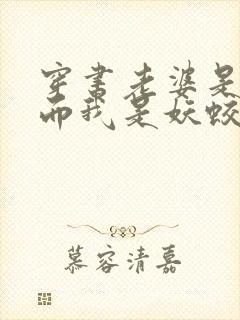 穿书老婆是
而我是妖蛟
慕容清嘉